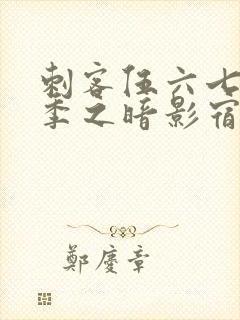 刺客伍六七
季之暗影宿
鄭慶章